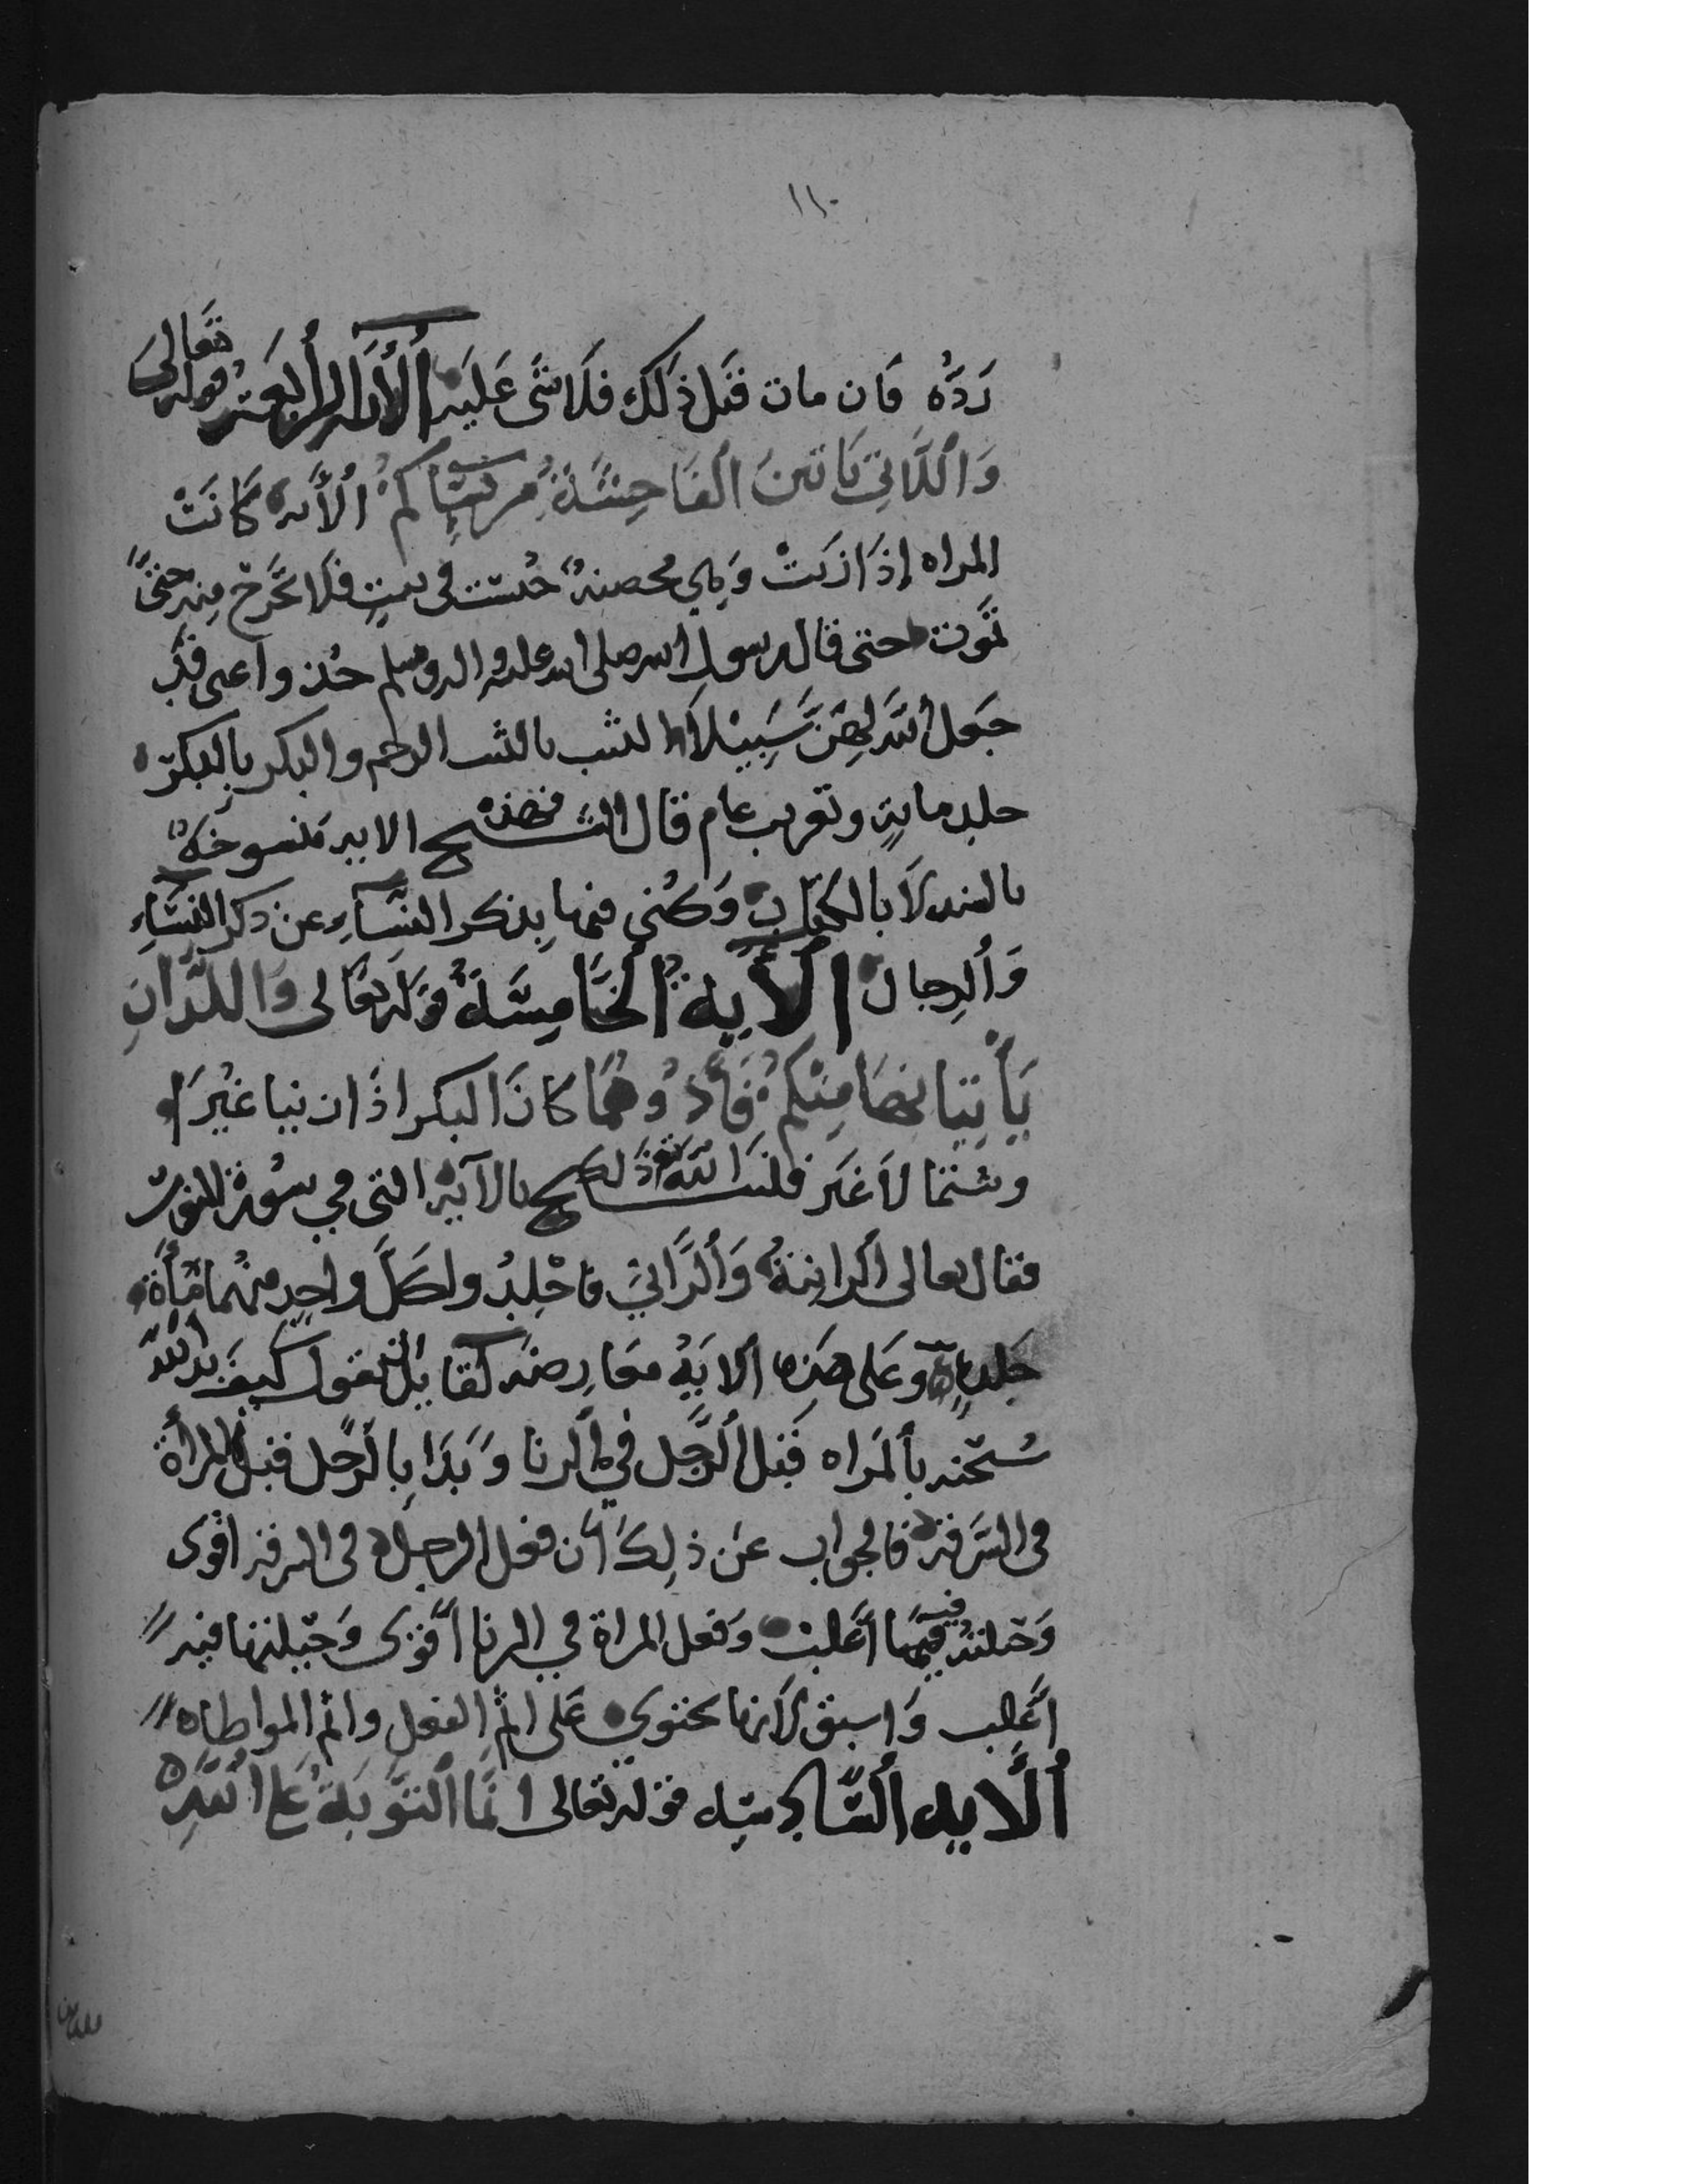 ١١٠
رَدَّهُ فان مات قبل ذلك فلا شى عَليَه الأيه الرابعة قوله تعالى
وَاللَّاتِي يَاتين الفَاحِشَةَ مِن نِسَائِكُمْ الأيه كَانَتْ
المراه إذَا زنَتْ وَهِي محصنة حُبست فى بيتٍ فلا تخرُج مِنه حتىً
تمَوت حتى قال رسول الله صلى الله عليه واله وسلم خذو اعنى قد
جَعل اللّه لهِنَّ سَبِيْلاً الثيب بالثيب الرجم والبكر بالبكر
جلد مايةٍ وتغريب عام قال الشيخ فهذه الايه مَنسوخَةٌ
بالسنه لاَ بالكِتاب وَكُنى فيها بِذكر النسَاءِ عن ذكر النسَاءِ
وَالرِجال الأَيِة الخَامِسَة قوله تعَالى وَاللذَانِ
يَأتِيَانِهَا مِنْكمُ فَأَذُوهُمَا كانَ البكر اذَا زنيا غيُرَا
وشتما لاَ غَير فنسخ اللهُ ذلك بالآيه التى في سُورة النور
فقال تعالى الزانيَةُ وَالزَّانِي فاجْلِدُوا كلَّ واحِدٍ منهُما مِأَة
جَلدةٍ وعَلى هَذِه الايَةُ معَارِضه كقايل يقول كيف بدا اللّه
سُبحنه بالمَراه قَبل الرَّجل في الزنا وَبَدَا بِالرَّجل قبل المرأة
فى السَرقة فالجواب عَن ذلِكَ أن فعل الرجل فى السرقه اقوى
وَحيلته فيها أغلب وَفعل المراة في الزنا أقوى وَحيلتها فيه
أغلب وَاسبق لاَنها تحتوى عَلى اثم الفعل واثم المواطاه
الَّايه السَّادِسَه قوله تعالى انمَّا التَّوبَةُ عَلى اللّهِ